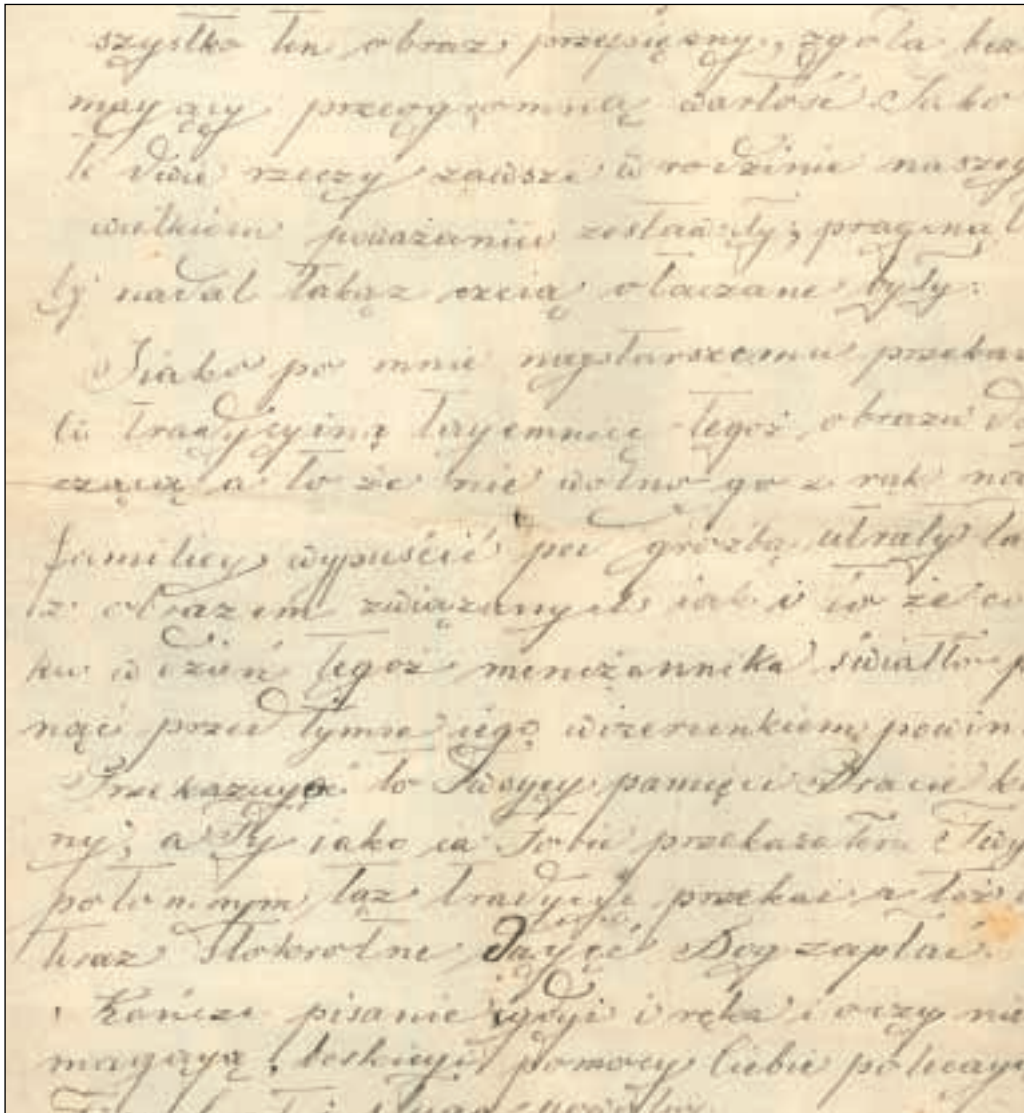 szystko ten obraz przepsiękny, zgoła bez
mający przeogromną wartość. Jako
te dwie rzeczy zawsze w rodzinie naszey
wielkiem poważaniu zostawały, pragnął
by nadal takąz czcią otaczane były.
Jiako po mnie naystarszemu przekaz
tradycyiną tayemnicę tegoż obrazu
czącą a to że nie wolno go z rąk na
familiey wypuścić pod groźbą utraty ła
z obrazem związanych iak i io że co
ku w dzień tegoż menczennika światło p
nąć przed tymże iego wizerunkiem powin
Przekazuyąc to Twoyey pamięci Bracie ko
ny, a Ty iako ia Tobie przekazałem Twy
potomnym taż tradycye przekaż a toż
teraz stokrotne dayąć Bog zapłać.
Kończe pisanie gdyż i ręka i oczy nie
magaya, boskieyi pomocy Ciebie polecayą